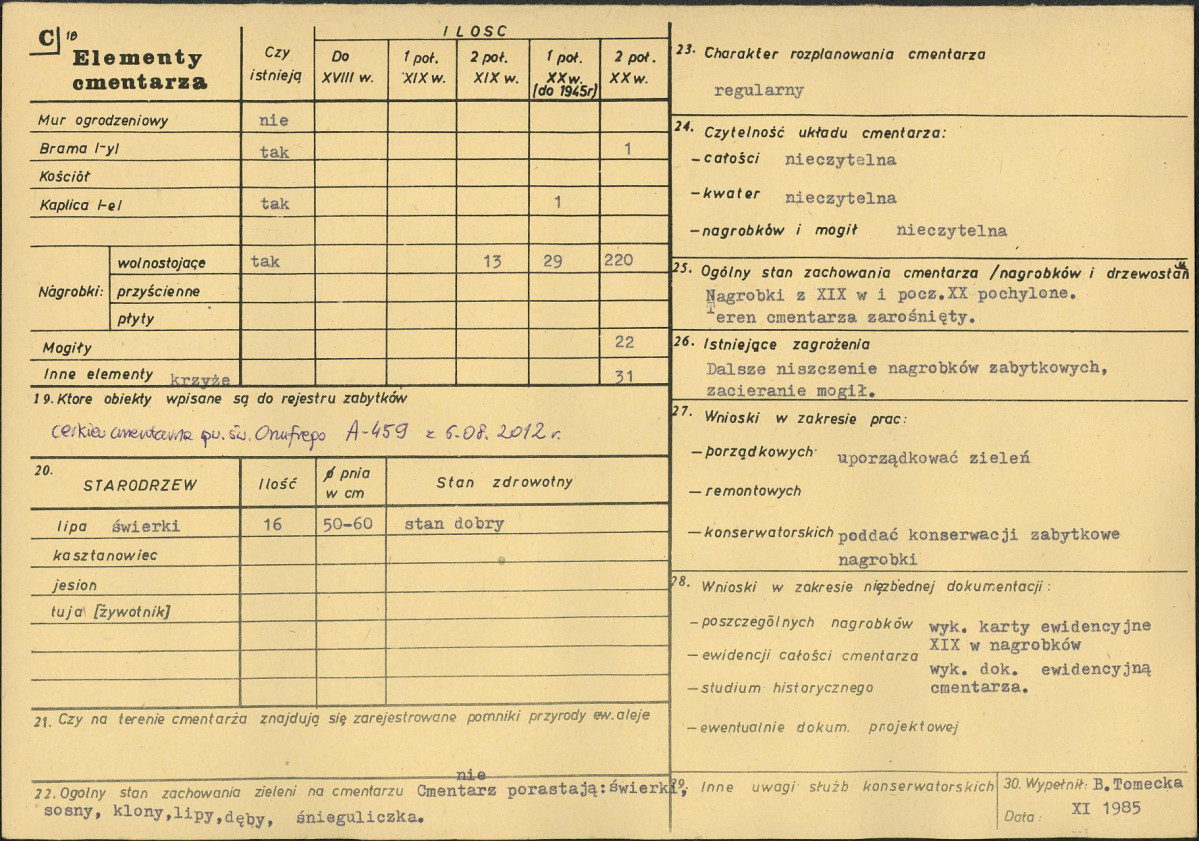 C 18
Elementy cmentarza
Czy istnieją
ILOSC
Do XVIII w.
1 poł. XIX w.
2 poł. XIX w.
1 poł. XX w. (do 1945r)
2 poł. XX w.
Mur ogrodzeniowy nie
Brama l-yl tak 1
Kościół
Kaplica l-el tak 1
Nagrobki:
wolnostojące tak 13 29 220
przyścienne
płyty
Mogiły 22
Inne elementy krzyże 31
19. Ktore obiekty wpisane są do rejestru zabytków
cerkiew cmentarna pw. św. Onufrego A-459 z 6.08.2012 r.
20.
STARODRZEW Ilość ø pnia w cm Stan zdrowotny
lipa świerki 16 50-60 stan dobry
kasztanowiec
jesion
tuja [żywotnik]
21. Czy na terenie cmentarża znajdują się zarejestrowane pomniki przyrody ew. aleje
nie
22. Ogolny stan zachowania zieleni na cmentarzu Cmentarz porastają: świerki,
sosny, klony, lipy, dęby, śnieguliczka.
23. Charakter rozplanowania cmentarza
regularny
24. Czytelność układu cmentarza:
– całości nieczytelna
– kwater nieczytelna
– nagrobków i mogił nieczytelna
25. Ogólny stan zachowania cmentarza /nagrobków i drzewostan
Nagrobki z XIX w i pocz.XX pochylone.
Teren cmentarza zarośnięty.
26. Istniejące zagrożenia
Dalsze niszczenie nagrobków zabytkowych,
zacieranie mogił.
27. Wnioski w zakresie prac:
– porządkowych uporządkować zieleń
– remontowych
– konserwatorskich poddać konserwacji zabytkowe
nagrobki
28. Wnioski w zakresie nięzbednej dokumentacji:
– poszczególnych nagrobków wyk. karty ewidencyjne
XIX w nagrobków
– ewidencji całości cmentarza
wyk. dok. ewidencyjną
– studium historycznego cmentarza.
– ewentualnie dokum. projektowej
29. Inne uwagi służb konserwatorskich
30. Wypełnił: B.Tomecka
Data: XI 1985